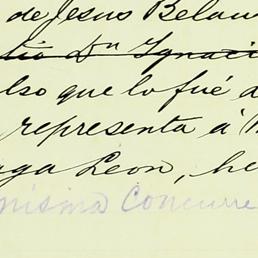 de Jesus Belau
tio Dn Ignaci
lso que lo fué a
representa á
aga Leon, he
misma Concurre